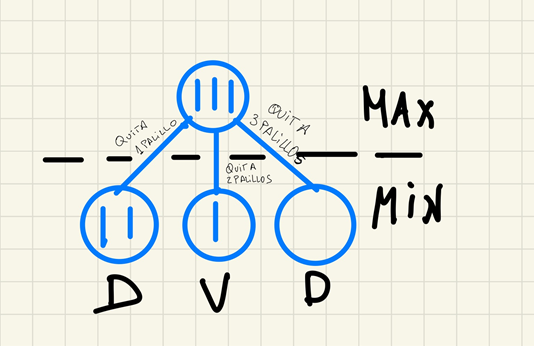 MAX
QUITA
1 PALILLO
QUITA
2 PALILLOS
QUITA
3 PALILLOS
MiN
D V D